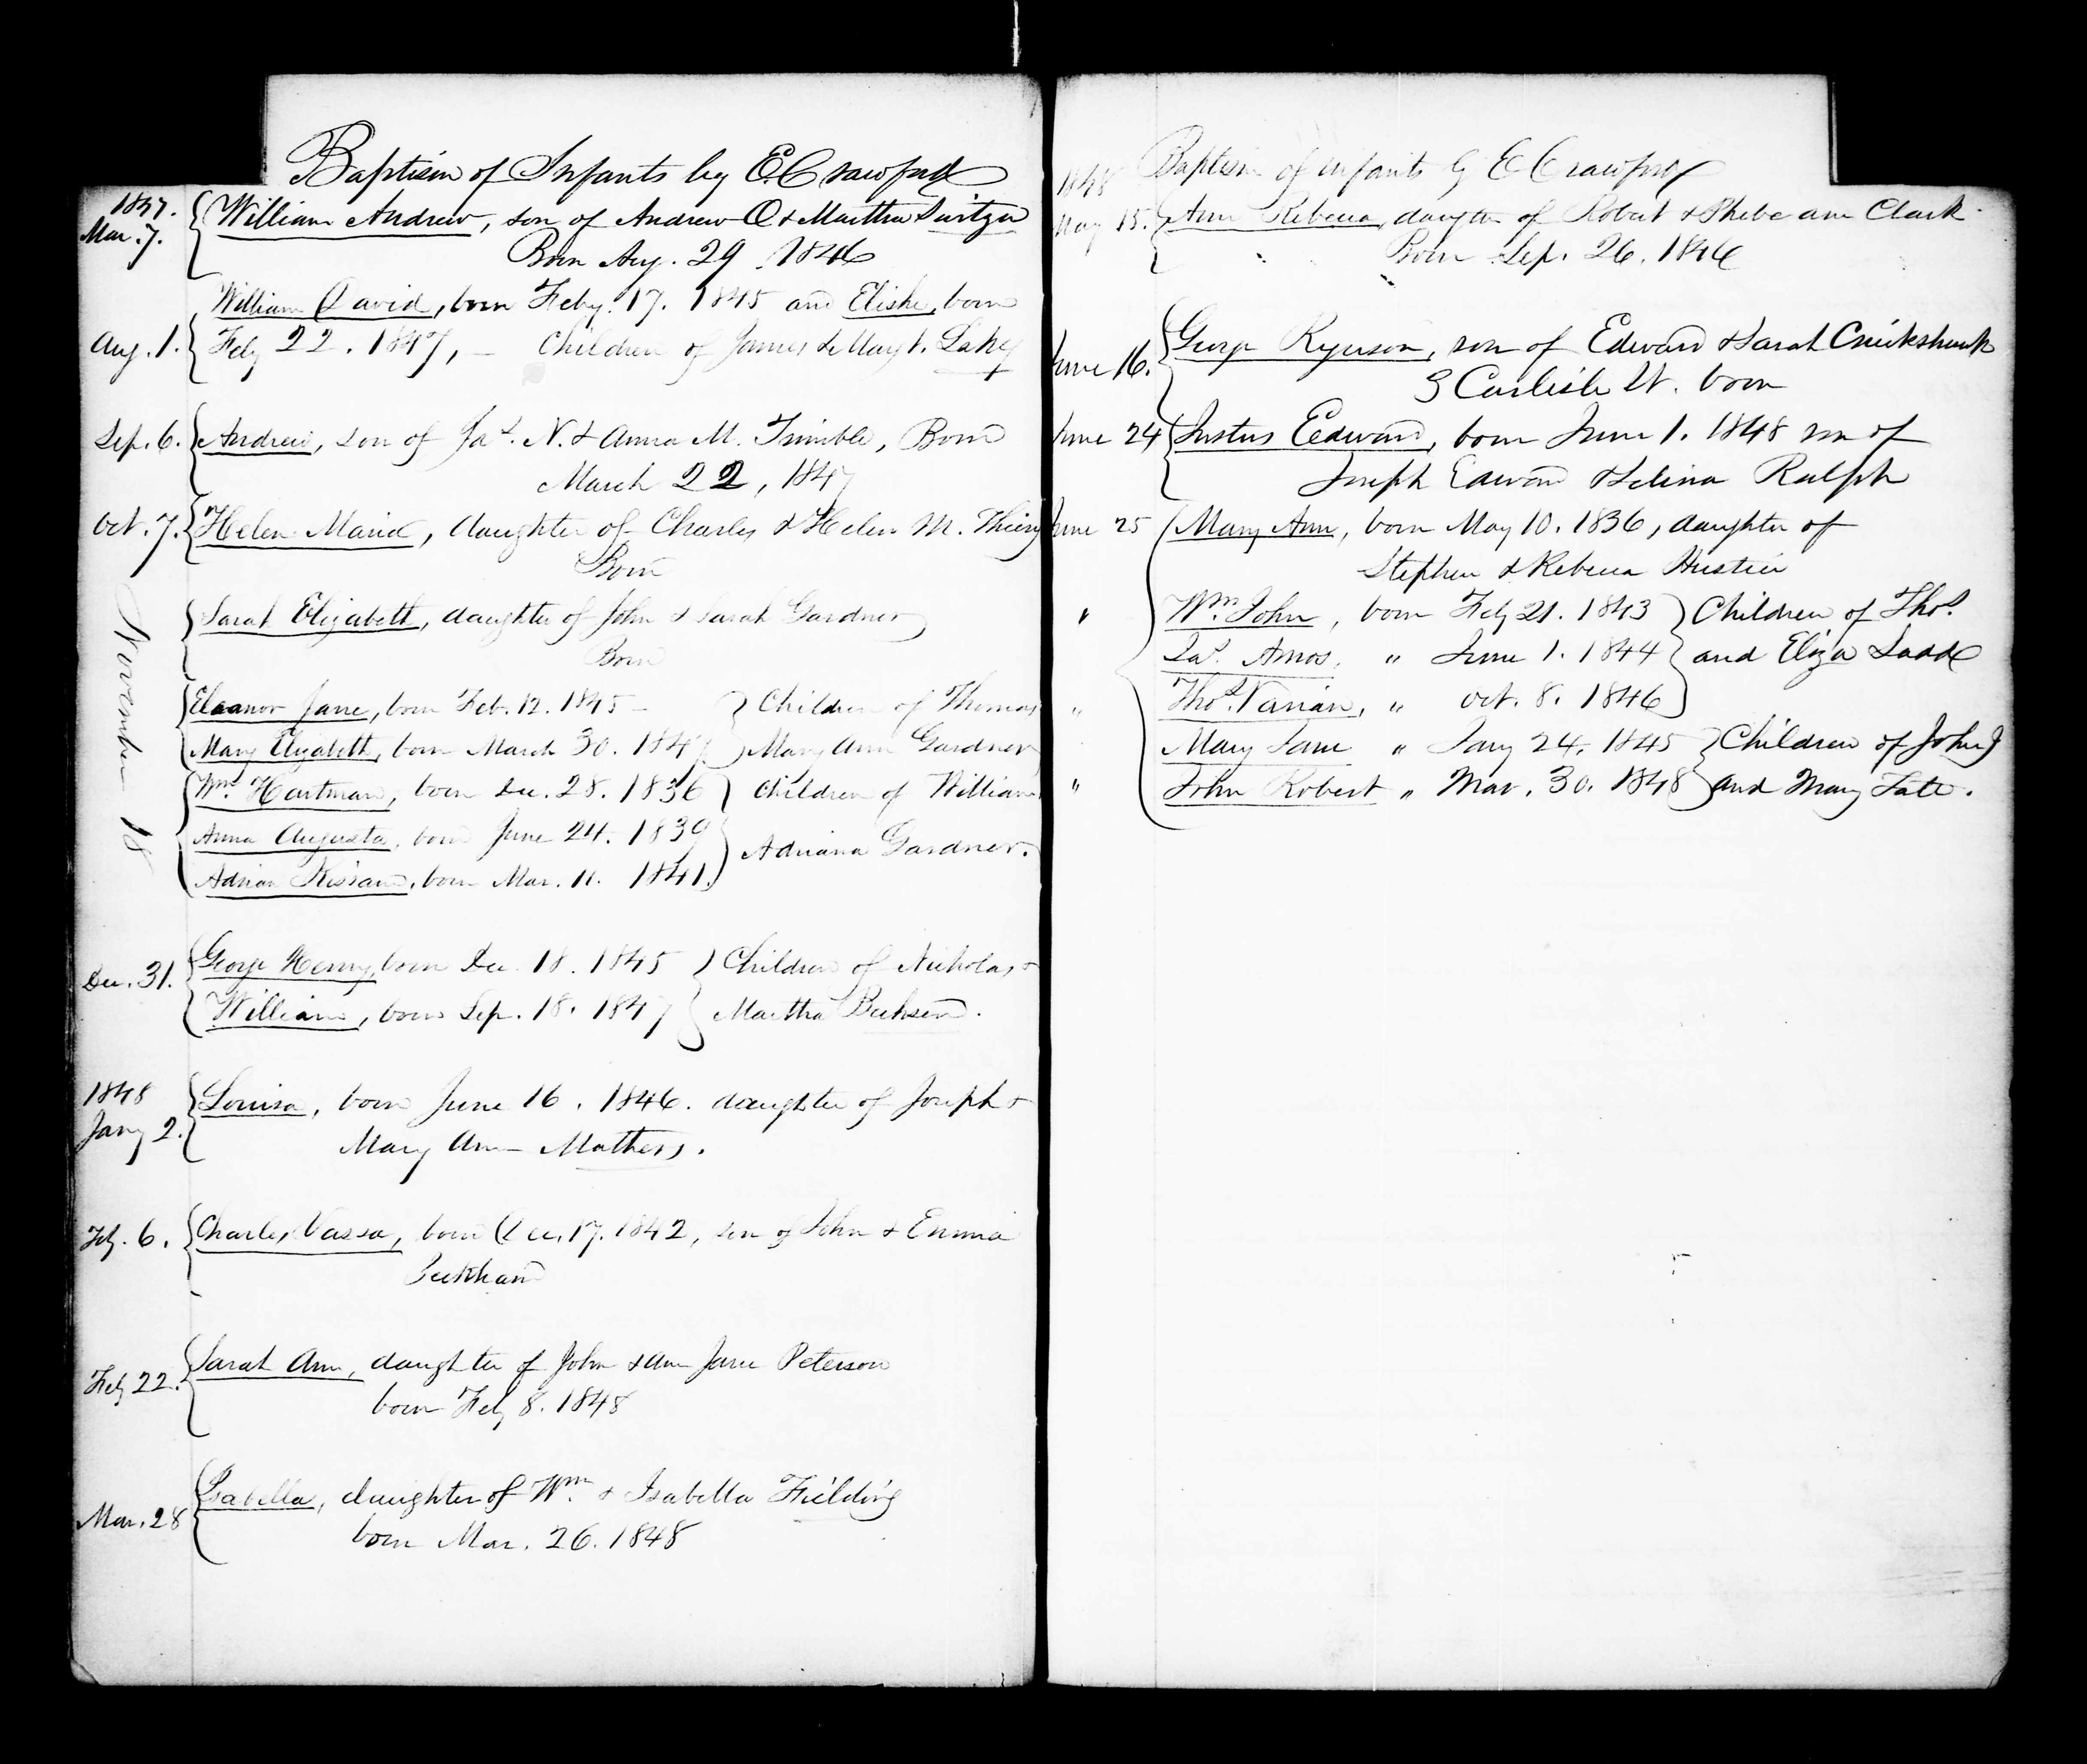 Baptism of Infants by E. Crawford
1847.
Mar. 7.
William Andrew, son of Andrew O & Martha Switzer
Born Aug. 29. 1846
William David, born Feby. 17. 1845 and Elisha, born
Aug. 1. Feby 22. 1847, — Children of James & Mary t. Lahey
Sep. 6. Andrew, son of Jas. N. & Anna M. Trimble, Born
March 22, 1847
Oct. 7. Helen Maria, daughter of Charles & Helen M. Thiery
Born
November 18
Sarah Elizabeth, daughter of John & Sarah Gardner
Born
Eleanor Jane, born Feb. 12. 1845 — Children of Thomas
Mary Elizabeth, born March 30. 1847. Mary Ann Gardner
Wm. Hartman, born Dec. 28. 1836 Children of William
Anna Augusta, born June 24. 1839
Adriana Gardner.
Adrian Kissam, born Mar. 11. 1841.
George Henry, born Dec 18. 1845 Children of Nicholas &
Dec. 31.
William, born Sep. 18. 1847 Martha
1848
Jany 2.
Louisa, born June 16. 1846. daughter of Joseph &
Mary Ann Mathers.
Feby. 6. Charles Vassa, born Dec. 17. 1842, son of John & Emma
Peckham
Feby 22. Sarah Ann, daughter of John & Ann Jane Peterson
born Feby 8. 1848
Mar. 28 Isabella, daughter of Wm. & Isabella Fielding
born Mar. 26. 1848
Baptism of infants by E Crawford
1848
May 15. Ann Rebecca, daughter of Robert & Phebe ann Clark
Born Sep. 26. 1846
June 16. George Ryerson, son of Edward & Sarah Cruikshank
3 Carlisle St. born
June 24 Justus Edward, born June 1. 1848 son of
Joseph Edward & Selina Ralph
June 25 Mary Ann, born May 10. 1836, daughter of
Stephen & Rebecca
" Wm. John, born Feby 21. 1843 Children of Thos.
Jas. Amos, " June 1. 1844 and Eliza Ladd
" Thos. Varian, " Oct. 8. 1846
Mary Jane " Jany 24. 1845 Children of John J
" John Robert " Mar. 30. 1848 and Mary Tate.